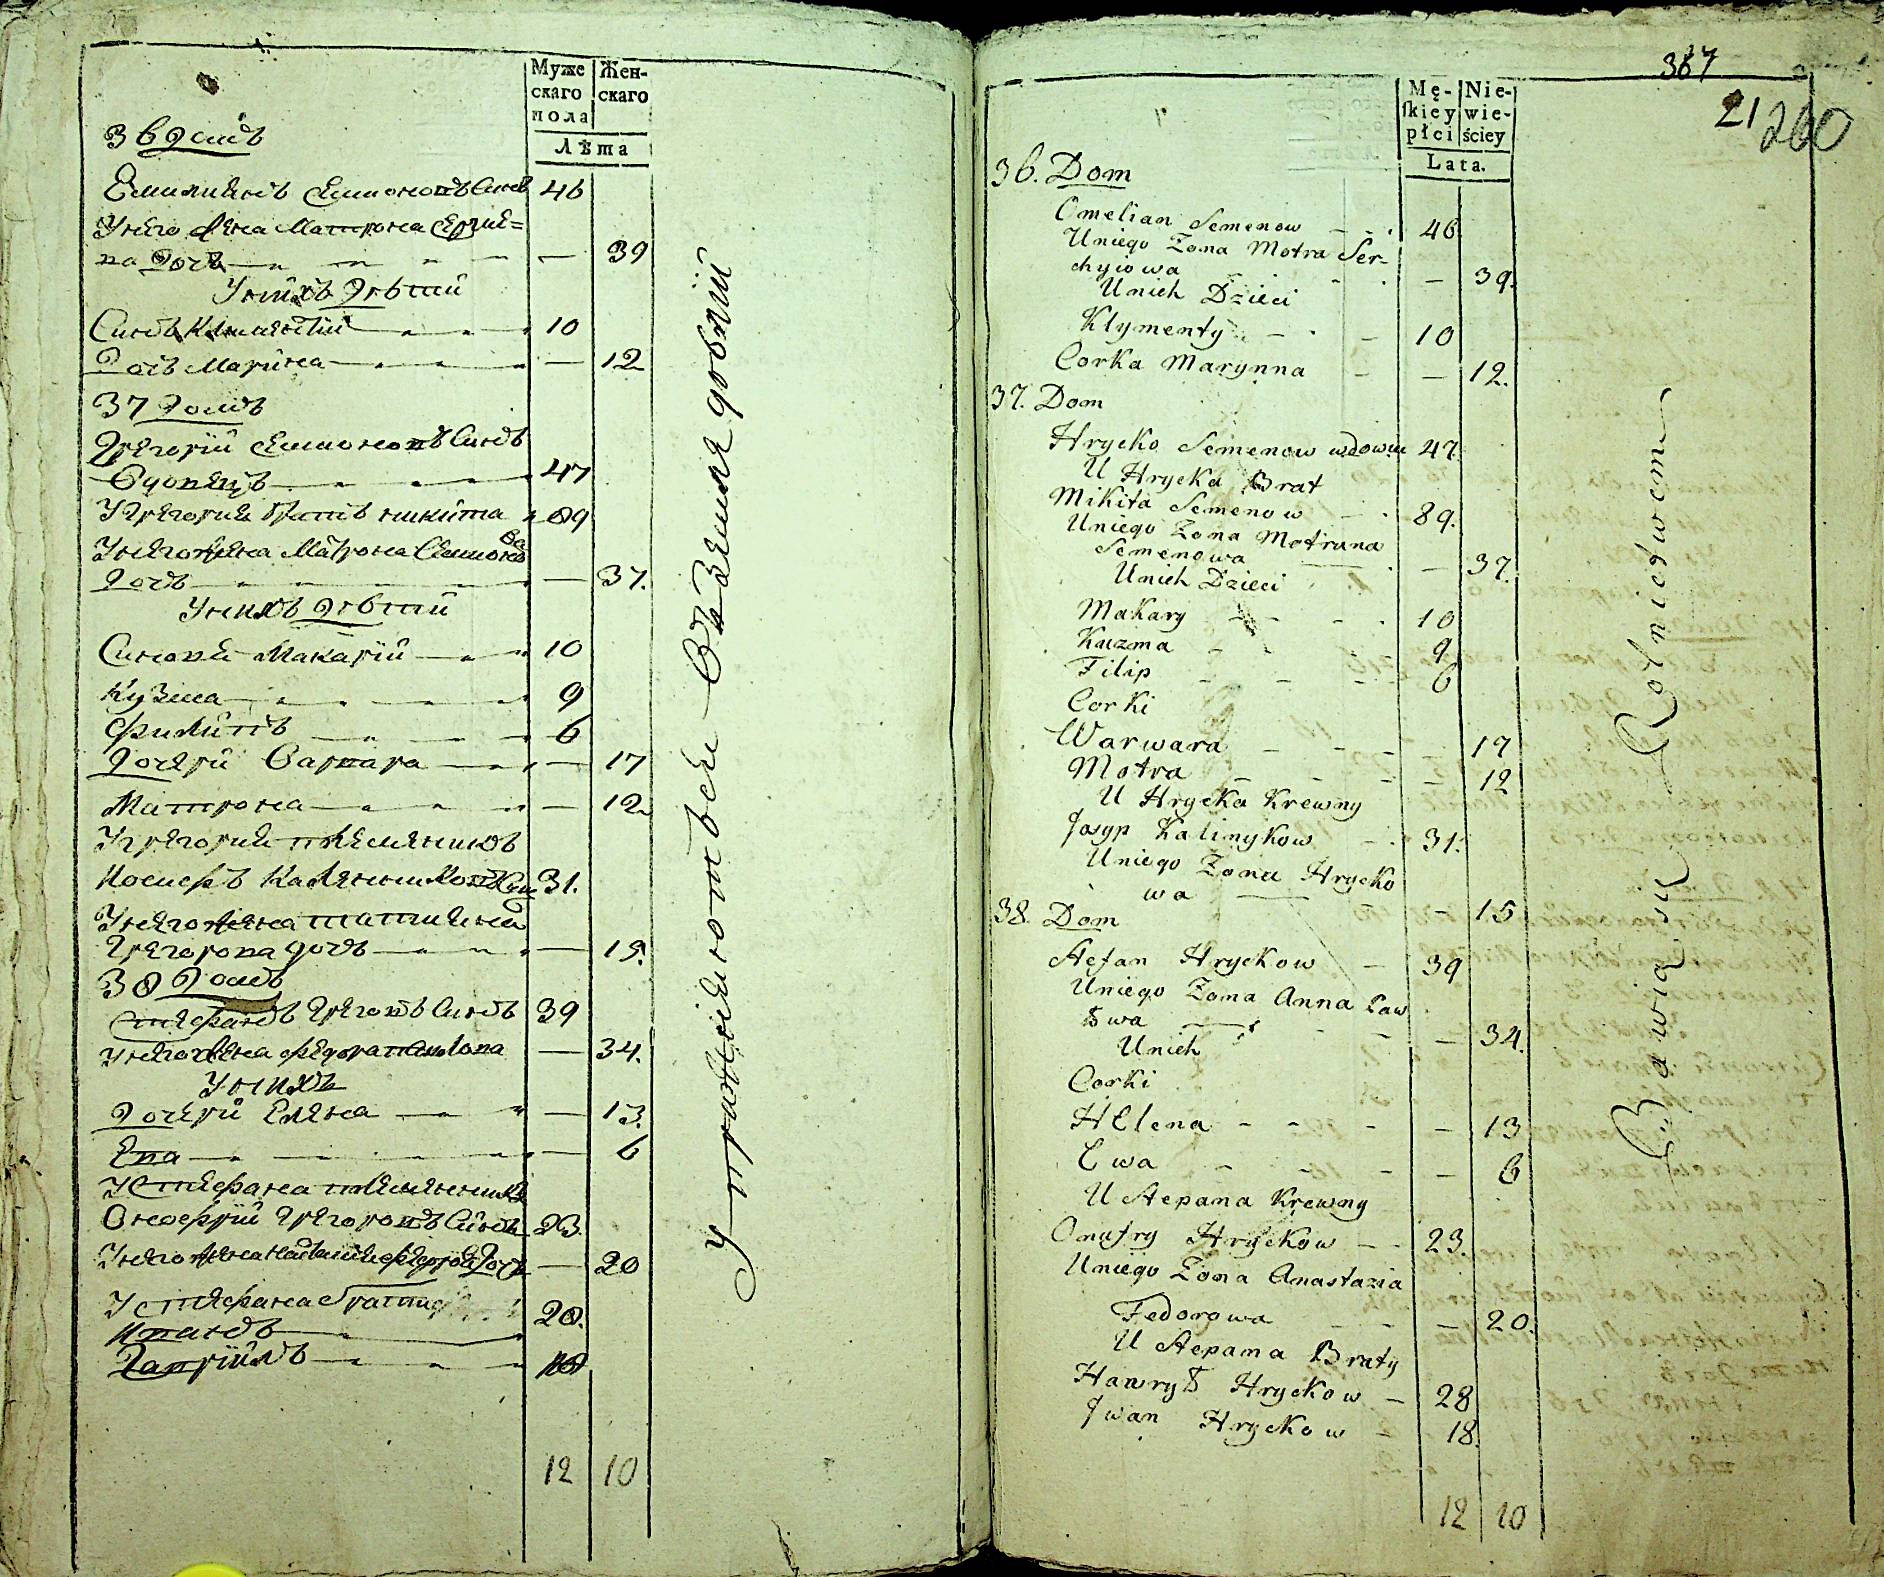 Муже
скаго
пола
Жен-
скаго
Лѣта
36 Домъ
Емилианъ Симоновъ Синъ 46
Унего Жена Матрона Сергие=
ва Дочь — 39
Унихъ Дѣтий
Синъ Климентий 10
Дочь Марина — 12
37 Домъ
Григорий Симоновъ Синъ
Вдовецъ 47
У Григория братъ никита 89
Унего Жена Матрона Симонова
Дочъ — 37.
Унихъ Дѣтий
Синови Макарий 10
Кузма 9
Филипъ 6
Дочери Варвара — 17
Матрона — 12
Угригория племеникъ
Иосифъ Калениковъ Син 31.
Унего Жена татияна
Григорова дочъ — 15.
38 Домъ
Стефанъ Григовъ Синъ 39
Унего Жена — 34.
Унихъ
Дочери Елена — 13.
Ева — 6
У Стефана племенникъ
Онофрий Григоровъ Синъ 23.
Унего Жена — 20
У Стефана брати
Иванъ 28.
Гавриилъ 18
12 10
упражняются Вземледелии
367
21 260
Mę-
skiey
płci
Nie-
wie-
ściey
Lata.
36. Dom
Omelian Semenow 46
Uniego Zona Motra Ser-
chyiowa — 39.
Unich Dzieci
Klymenty 10
Corka Marynna — 12.
37. Dom
Hrycko Semenow wdowiec 47.
U Hrycka Brat
Mikita Semenow 89.
Uniego Zona Motruna
Semenowa — 37.
Unich Dzieci
Makary 10
Kuzma 9
Filip 6
Corki
Warwara — 17
Motra — 12
U Hrycka Krewny
Josyp Kalinykow 31.
Uniego Zona Hrycko
wa — 15
38. Dom
Stefan Hryckow 39
Uniego Zona Anna Paw
łowa — 34.
Unich
Corki
Helena — 13
Ewa — 6
U Stepana Krewny
Onufry Hryckow 23.
Uniego Zona Anastazia
Fedorowa — 20.
U Stepana Braty
Hawrył Hryckow — 28
Jwan Hryckow 18.
12 10
Bawią się Rolnictwem